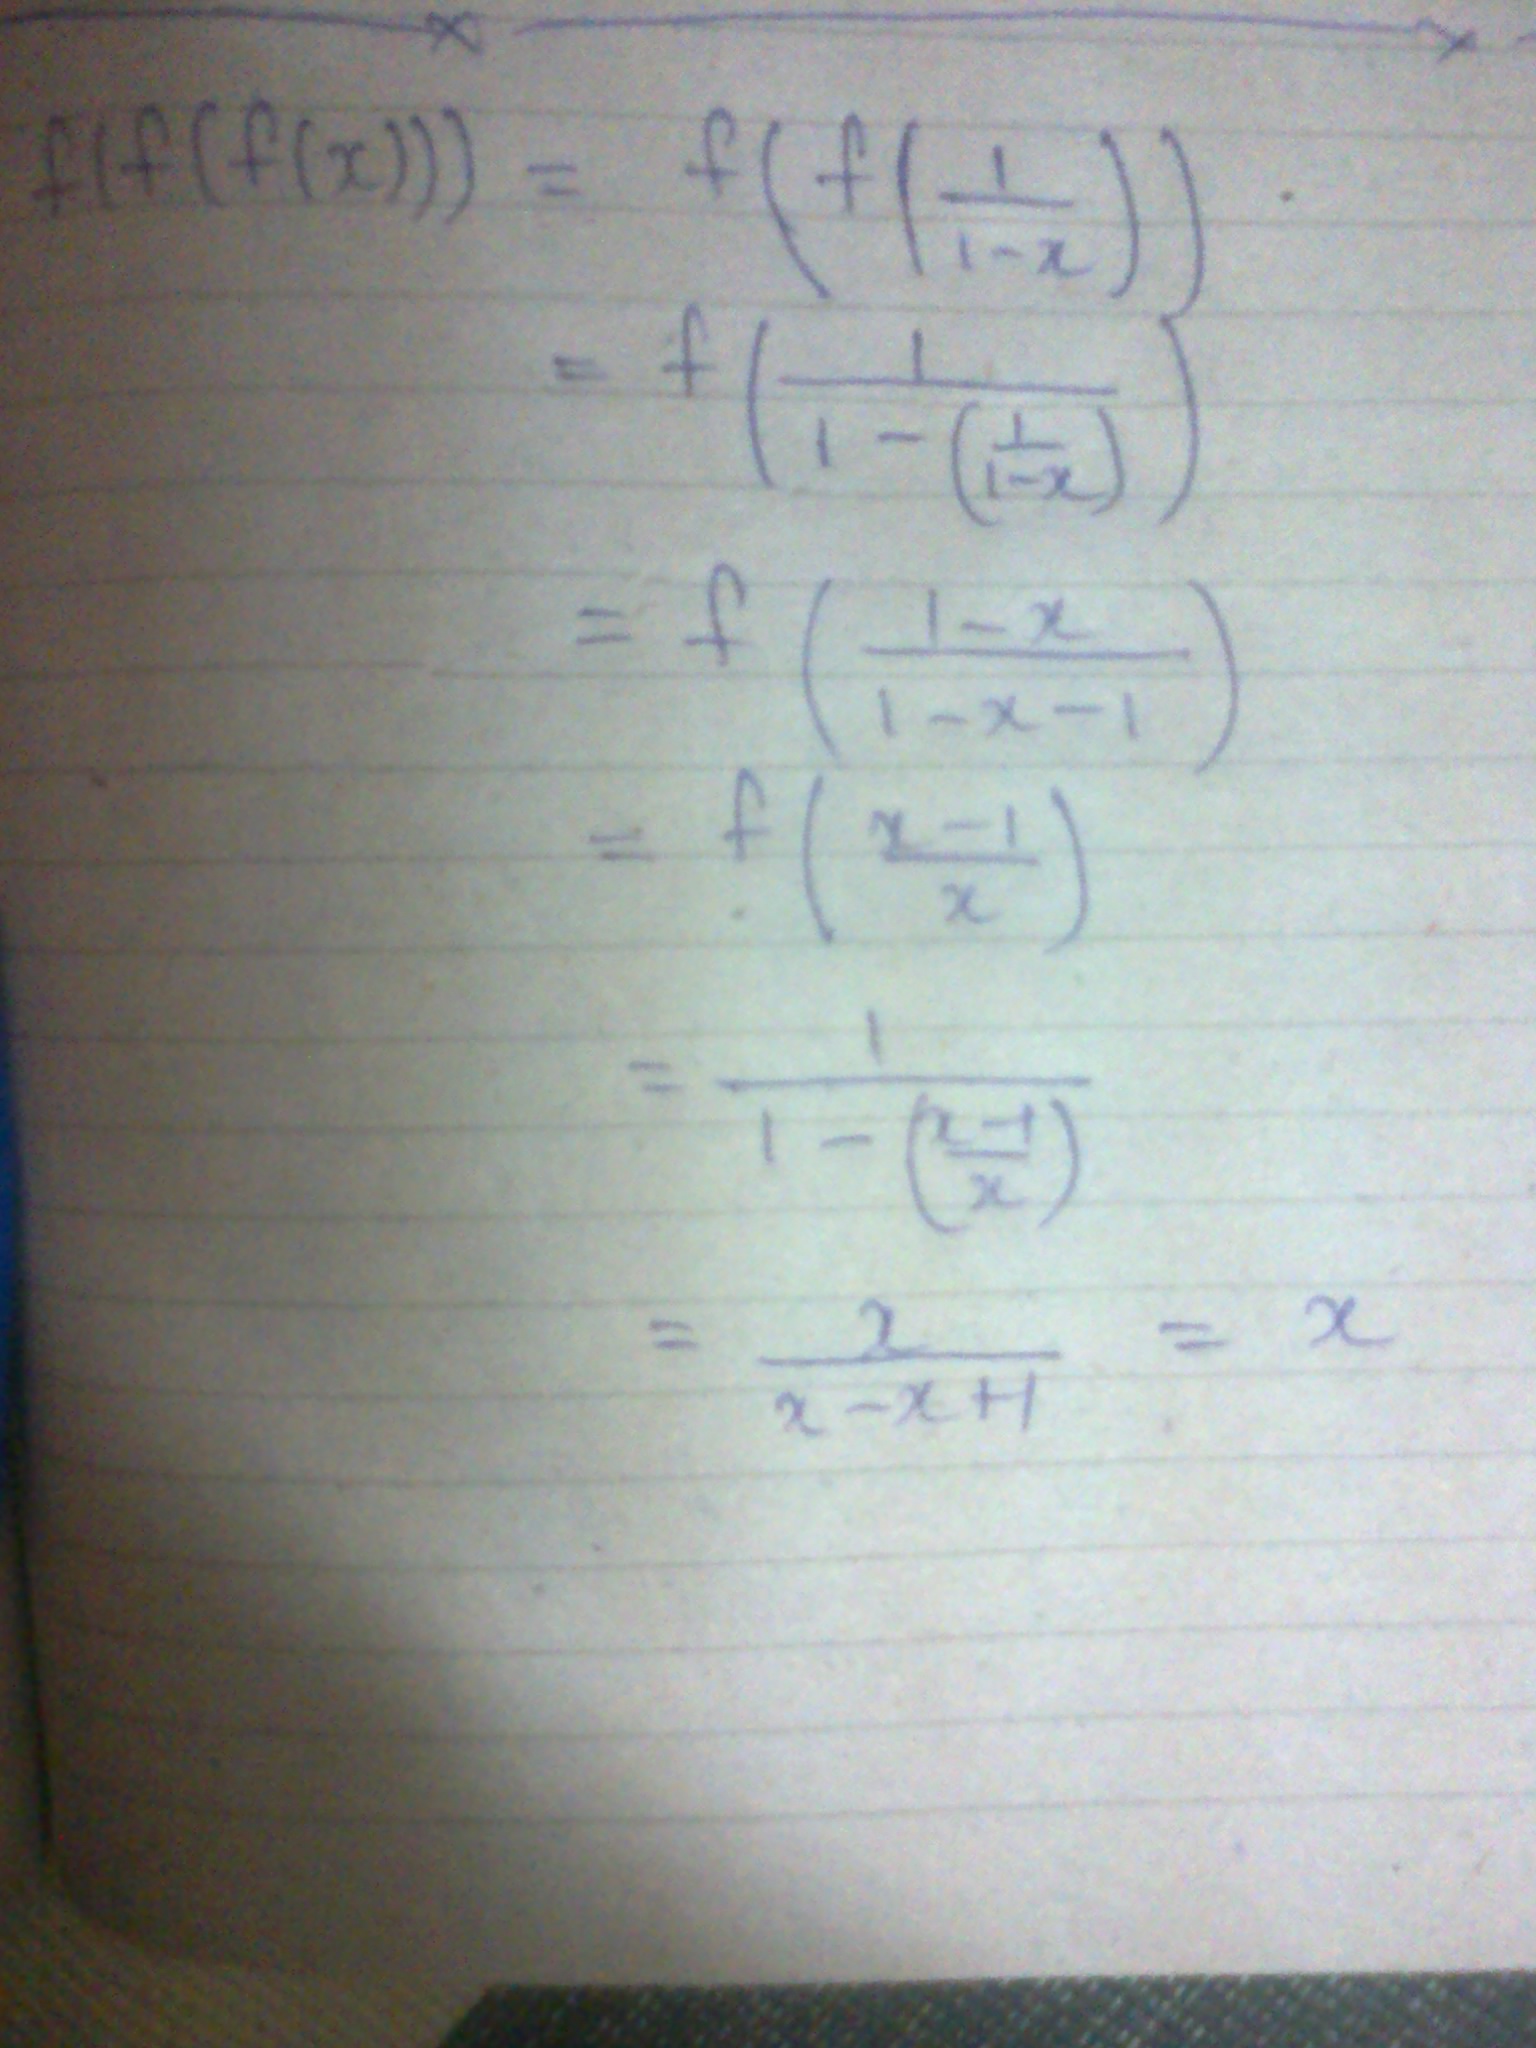 f(f(f(x))) = f(f(1/(1-x)))
= f(1/(1-(1/(1-x))))
= f((1-x)/(1-x-1))
= f((x-1)/x)
= 1/(1-((x-1)/x))
= x/(x-x+1) = x